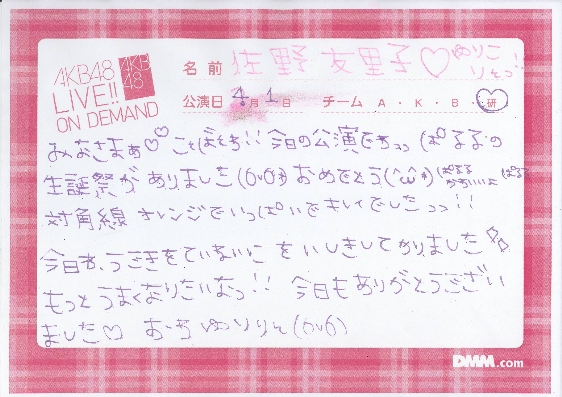 AKB48
LIVE!!
ON DEMAND
AKB
48
名前 佐野 友里子♡ ゆりこ
りそっ!!
公演日 4月1日 チーム A・K・B・研
みなさまぁ♡♡ こ ばそち!! 今日の公演でゎっっ ぱるるの
生誕祭がありました(6v6*) おめでとう(^ω^*) ぱるる かわいいよ ぱる
対角線 オレンジでいっぱいでキレイでしたっっ!!
今日ゎ、うごきをていねいに をいしきしておりました
もっとうまくなりたいなっ!! 今日もありがとうござい
ました♡ ゆりりん(6v6)
DMM.com